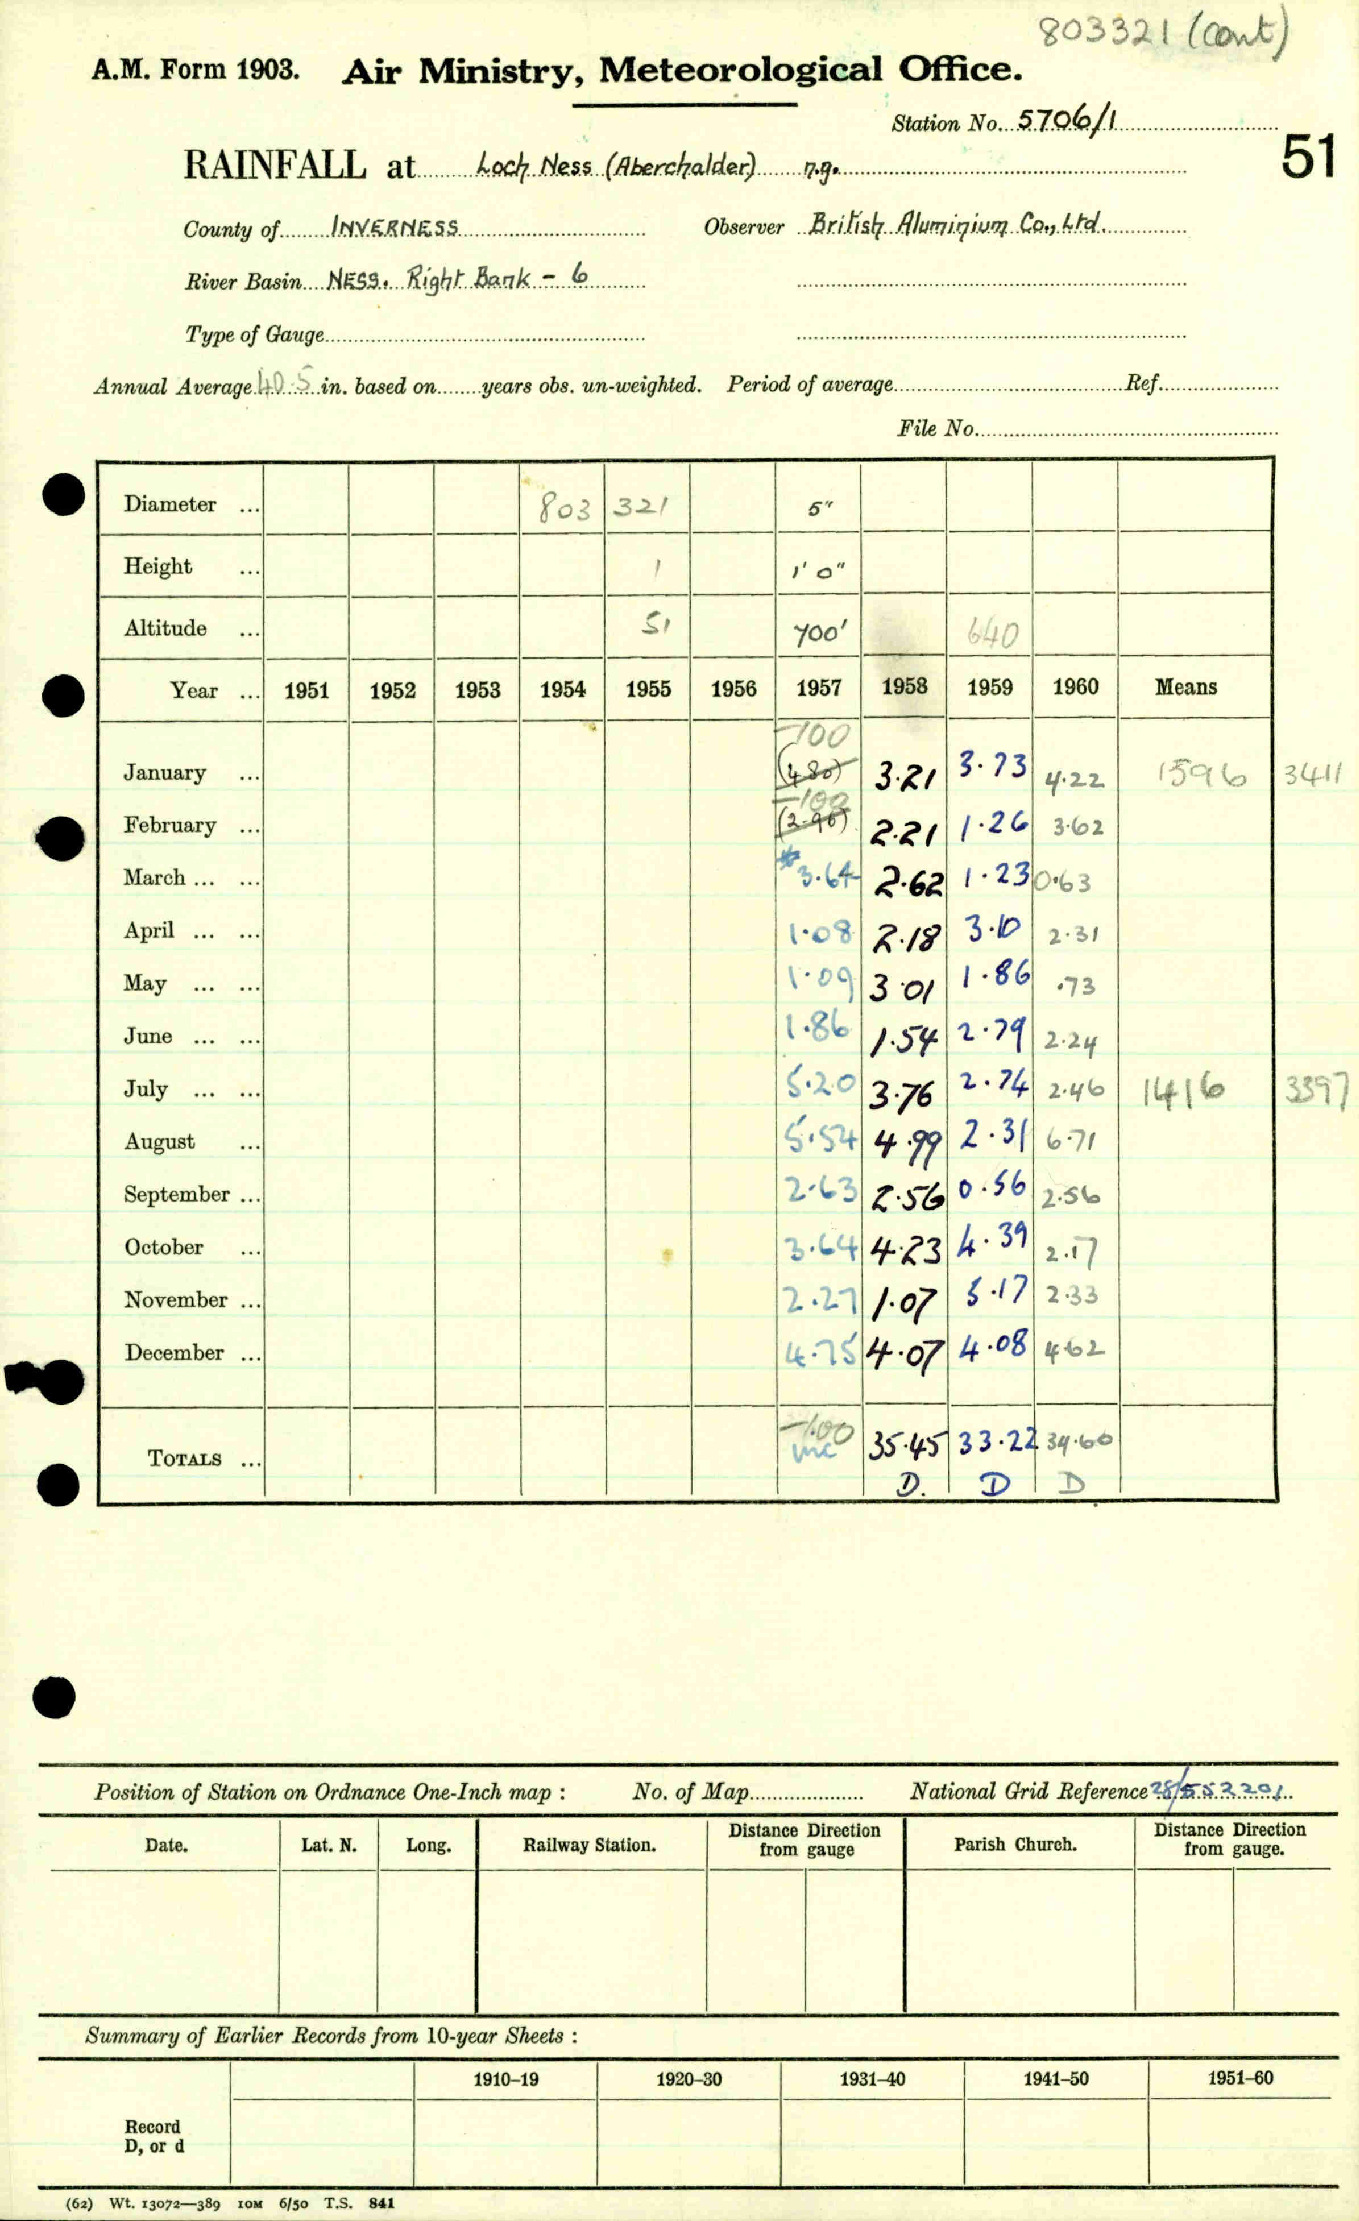 803321 (cont)
A.M. Form 1903. Air Ministry, Meteorological Office.
Station No. 5706/1
51
RAINFALL at Loch Ness (Aberchalder) n.g.
County of INVERNESS Observer British Aluminium Co., Ltd.
River Basin NESS. Right Bank - 6
Type of Gauge
Annual Average 40.5 in. based on years obs. un-weighted. Period of average Ref.
File No.
Diameter ... 803 321 5"
Height ... 1 1' 0"
Altitude ... 51 700' 640
Year ... 1951 1952 1953 1954 1955 1956 1957 1958 1959 1960 Means
-100
January ... (4.80) 3.21 3.73 4.22 1596 3411
-100
February ... (2.96) 2.21 1.26 3.62
March ... ... * 3.64 2.62 1.23 0.63
April ... ... 1.08 2.18 3.10 2.31
May ... ... 1.09 3.01 1.86 .73
June ... ... 1.86 1.54 2.79 2.24
July ... ... 5.20 3.76 2.74 2.46 1416 3397
August ... 5.54 4.99 2.31 6.71
September ... 2.63 2.56 0.56 2.56
October ... 3.64 4.23 4.39 2.17
November ... 2.27 1.07 5.17 2.33
December ... 4.75 4.07 4.08 4.62
-1.00
TOTALS ... inc 35.45 33.22 34.60
D. D D
Position of Station on Ordnance One-Inch map : No. of Map National Grid Reference 28/552201
Date. Lat. N. Long. Railway Station. Distance from gauge Direction Parish Church. Distance from gauge. Direction
Summary of Earlier Records from 10-year Sheets :
1910–19 1920–30 1931–40 1941–50 1951–60
Record
D, or d
(62) Wt. 13072—389 10M 6/50 T.S. 841